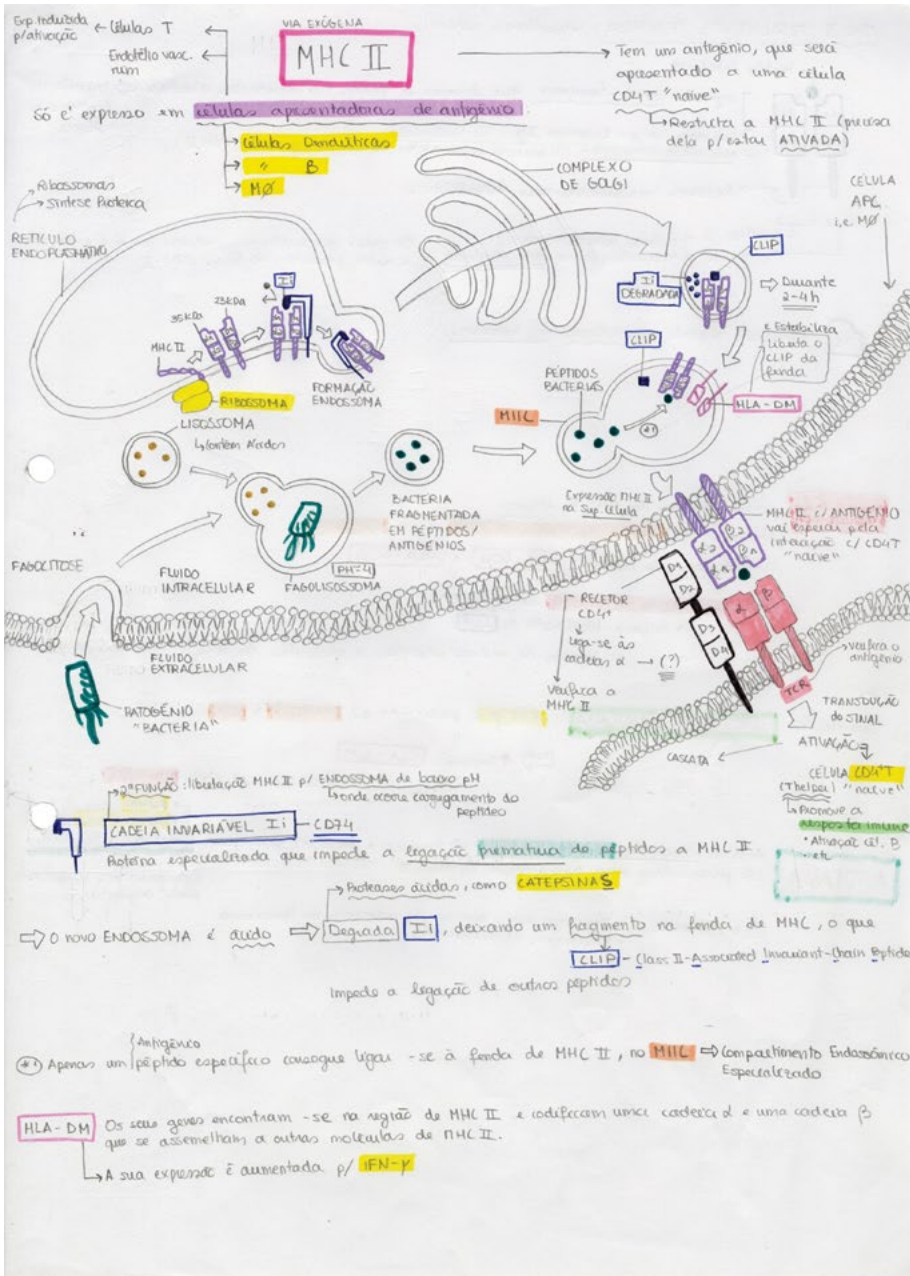 Exp. induzida
p/ativação
Células T
Endotélio vasc.
num
VIA EXÓGENA
MHC II
Tem um antigênio, que será
apresentado a uma célula
CD4T "naive"
Restricta a MHC II (precisa
dela p/estar ATIVADA)
Só é expresso em células apresentadoras de antigênio
Células Dendríticas
" B
MØ
Ribossomas
Síntese Proteica
RETÍCULO
ENDOPLASMÁTICO
COMPLEXO
DE GOLGI
CÉLULA
APC
i,e. MØ
CLIP
Ii
DEGRADADA
Durante
2-4h
Ii
35KDa
23KDa
MHC II
RIBOSSOMA
FORMAÇÃO
ENDOSSOMA
CLIP
e Estabiliza
Liberta o
CLIP da
fenda
PÉPTIDOS
BACTERIAS
HLA-DM
MIIC
*1
LISOSSOMA
contém ácidos
BACTERIA
FRAGMENTADA
EM PÉPTIDOS/
ANTIGÉNIOS
Expressão MHC II
na Sup. Célula
MHC II c/ ANTIGÉNIO
vai esperar pela
interacção c/ CD4T
"naive"
FAGOCITOSE
FLUIDO
INTRACELULAR
PH=4
FAGOLISOSSOMA
α2 β2
α1 β1
D1
D2
D3
D4
α β
TCR
RECETOR
CD4+
Liga-se às
cadeias α → (?)
Verifica a
MHC II
Verifica o
antigénio
FLUIDO
EXTRACELULAR
PATOGÉNIO
"BACTERIA"
TRANSDUÇÃO
do SINAL
ATIVAÇÃO
CASCATA
CÉLULA CD4+T
(Thelper) "naive"
Promove a
resposta imune
• Ativação cél. B
etc
2ª FUNÇÃO: libertação MHC II p/ ENDOSSOMA de baixo pH
onde ocorre carregamento do
peptídeo
CADEIA INVARIÁVEL Ii - CD74
Proteína especializada que impede a ligação prematura de péptidos a MHC II.
Proteases ácidas, como CATEPSINA S
O novo ENDOSSOMA é ácido ⇒ Degrada Ii, deixando um fragmento na fenda de MHC, o que
CLIP - Class II-Associated Invariant-Chain Peptide
Impede a ligação de outros péptidos
Antigénico
*1 Apenas um péptido específico consegue ligar-se à fenda de MHC II, no MIIC ⇒ Compartimento Endossómico
Especializado
HLA-DM Os seus genes encontram-se na região de MHC II e codificam uma cadeia α e uma cadeia β
que se assemelham a outras moléculas de MHC II.
A sua expressão é aumentada p/ IFN-γ